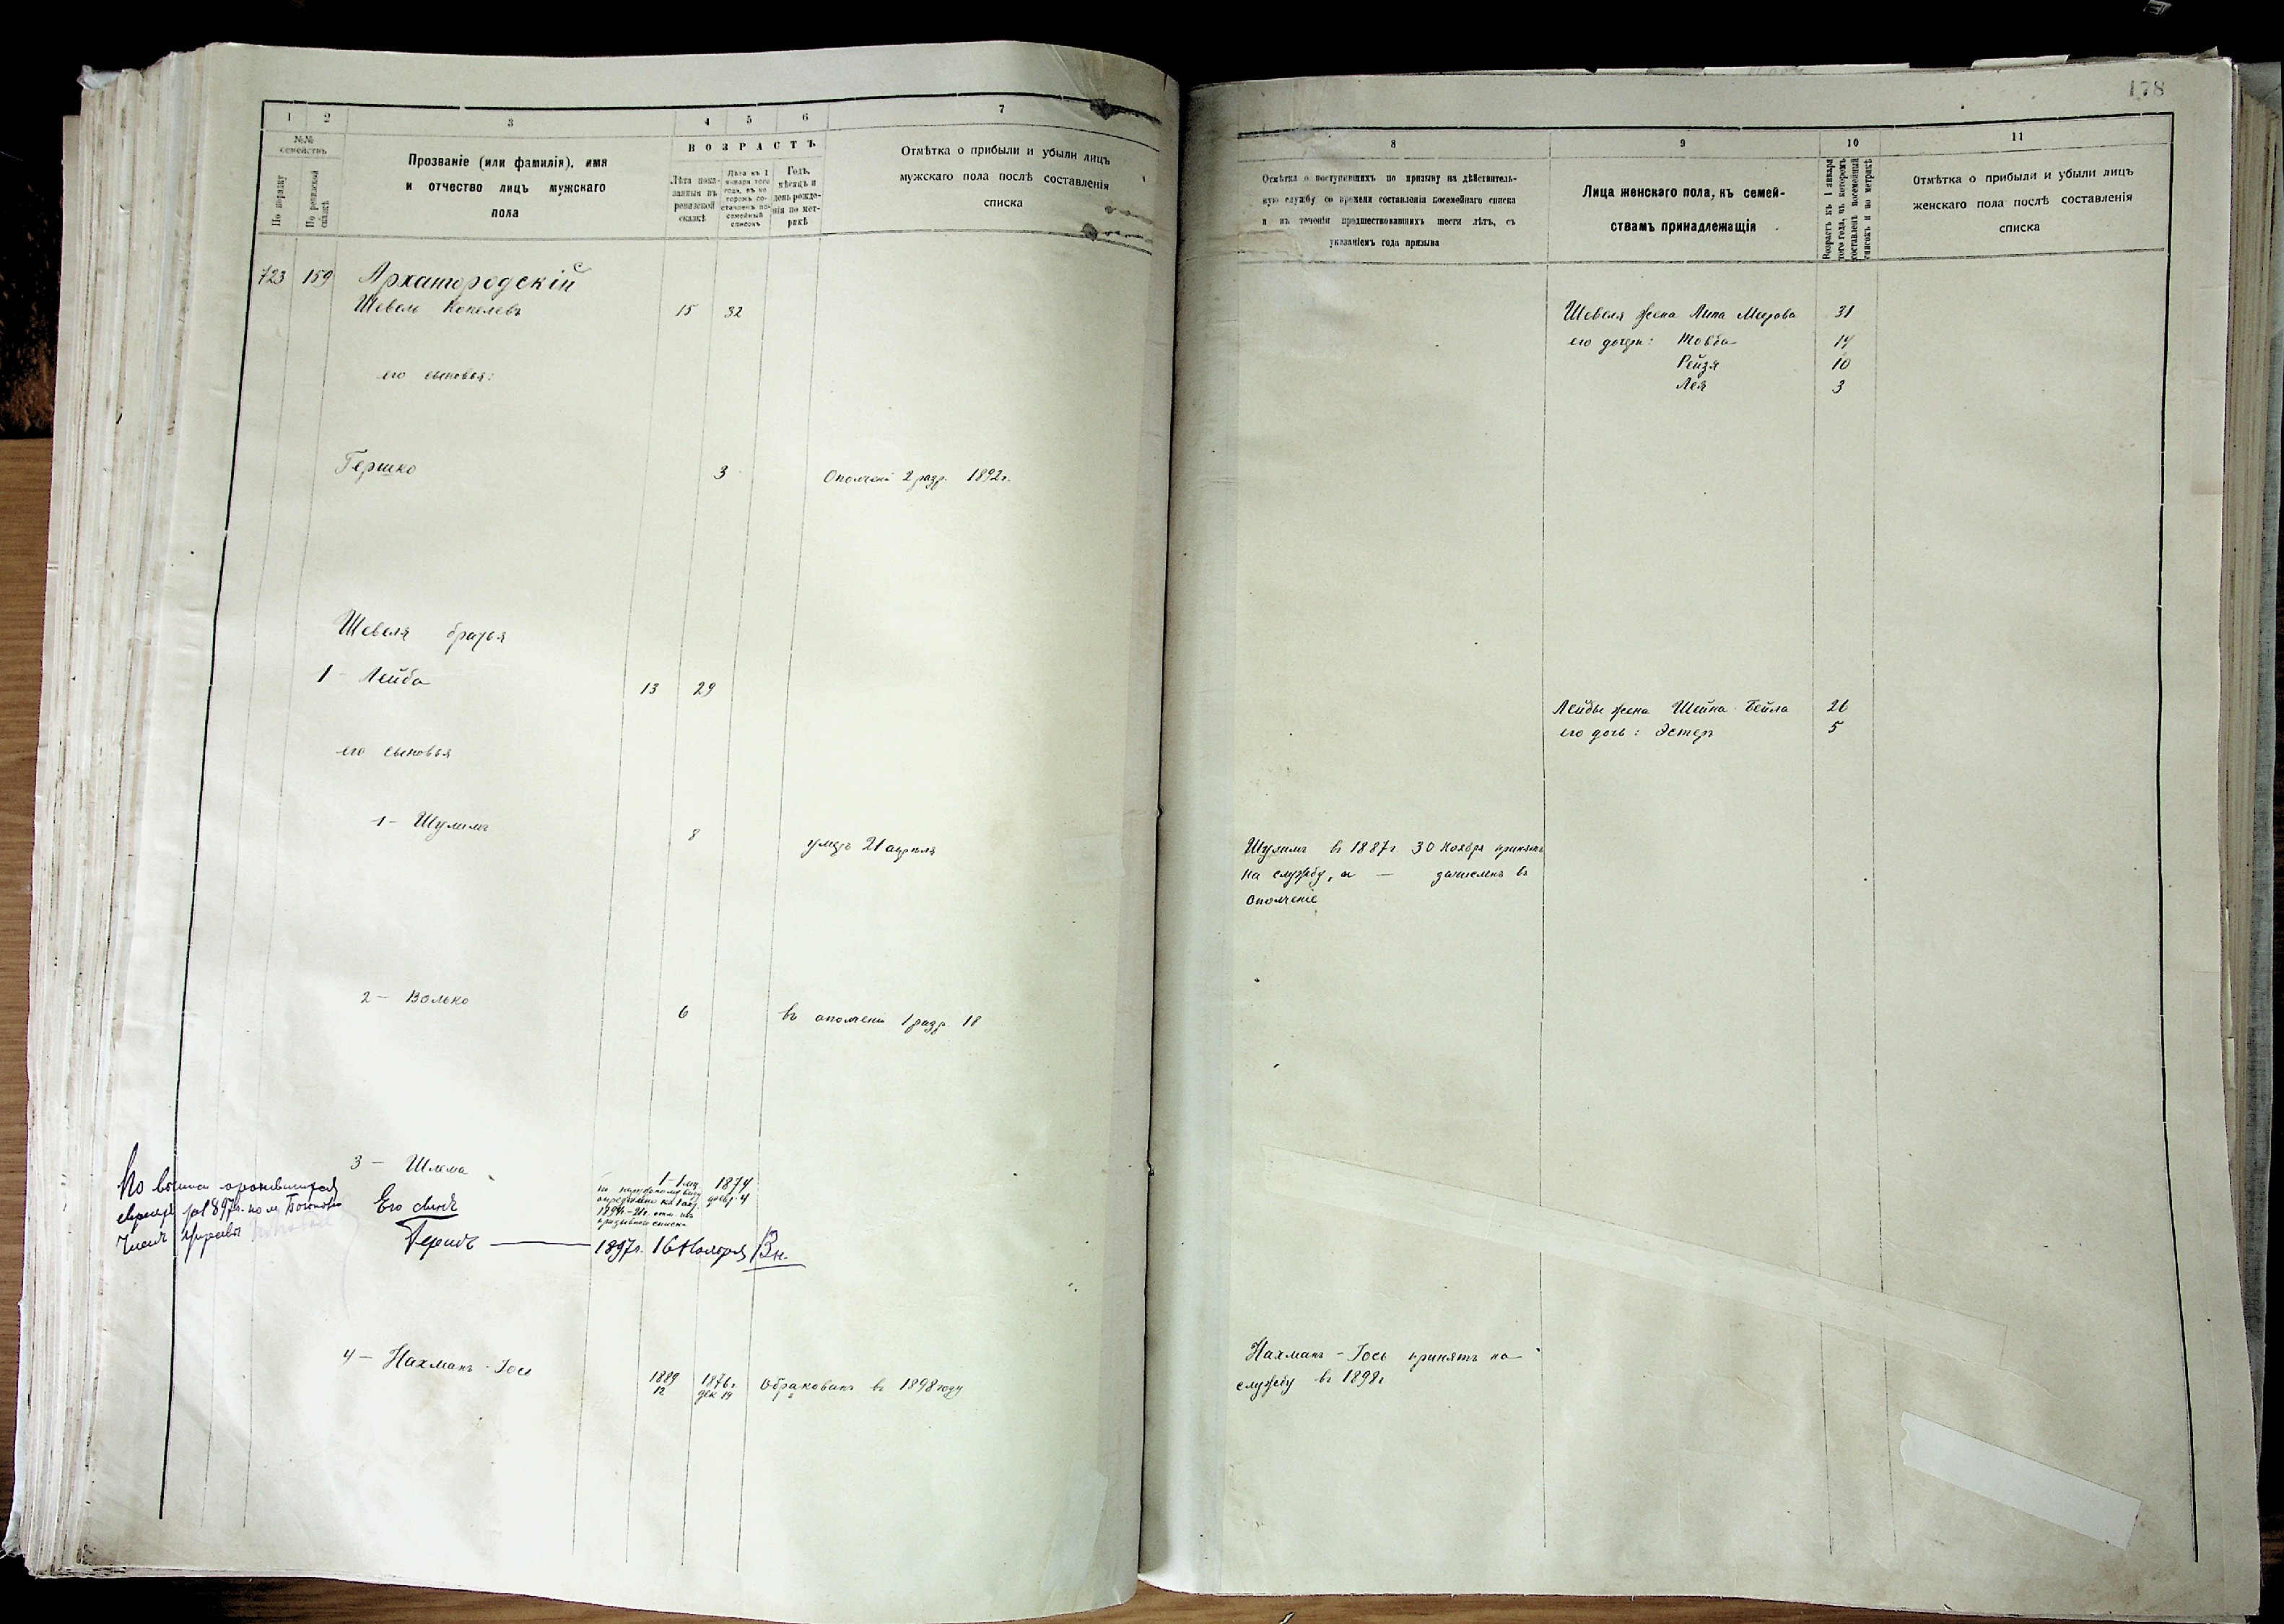 178
1
2
3
4
5
6
7
№№ семействъ
По порядку
По ревизской сказкѣ
Прозваніе (или фамилія), имя
и отчество лицъ мужскаго
пола
ВОЗРАСТЪ
Лѣта пока-
занныя въ
ревизской
сказкѣ
Лѣта къ 1
января того
года, въ ко
торомъ со-
ставленъ по-
семейный
списокъ
Годъ,
мѣсяцъ и
день рожде-
нія по мет-
рикѣ
Отмѣтка о прибыли и убыли лицъ
мужскаго пола послѣ составленія
списка
723 159 Архангородскій
Шевель Копелевъ 15 32
его сыновья:
Гершко 3 Ополчені 2 разр. 1892г.
Шевеля братья
1 - Лейба 13 29
его сыновья
1 - Шулимъ 8 21 апреля
2 - Волько 6 въ ополчени 1 разр. 18
3 - Шлема 1874
Его сынъ
1897г. 16 Ноября
4 - Нахманъ - Іось 1889 12 1876г. дек 14 Обракованъ въ 1898 году
8
9
10
11
Отмѣтка о поступившихъ по призыву на дѣйствитель-
ную службу со времени составленія посемейнаго списка
и въ теченіи предшествовавшихъ шести лѣтъ, съ
указаніемъ года призыва
Лица женскаго пола, къ семей-
ствамъ принадлежащія
Возрастъ къ 1 января
того года, въ которомъ
составленъ посемейный
списокъ и по метрикѣ
Отмѣтка о прибыли и убыли лицъ
женскаго пола послѣ составленія
списка
Шевеля жена Липа Меерова 31
его дочери: Товба 14
Рейзя 10
Лея 3
Лейбы жена Шейна-Бейла 26
его дочь: Эстеръ 5
Шулимъ въ 1887г 30 Ноября принятъ
на службу, а — зачисленъ въ
ополченіе
Нахманъ - Іось принятъ на
службу въ 1898г